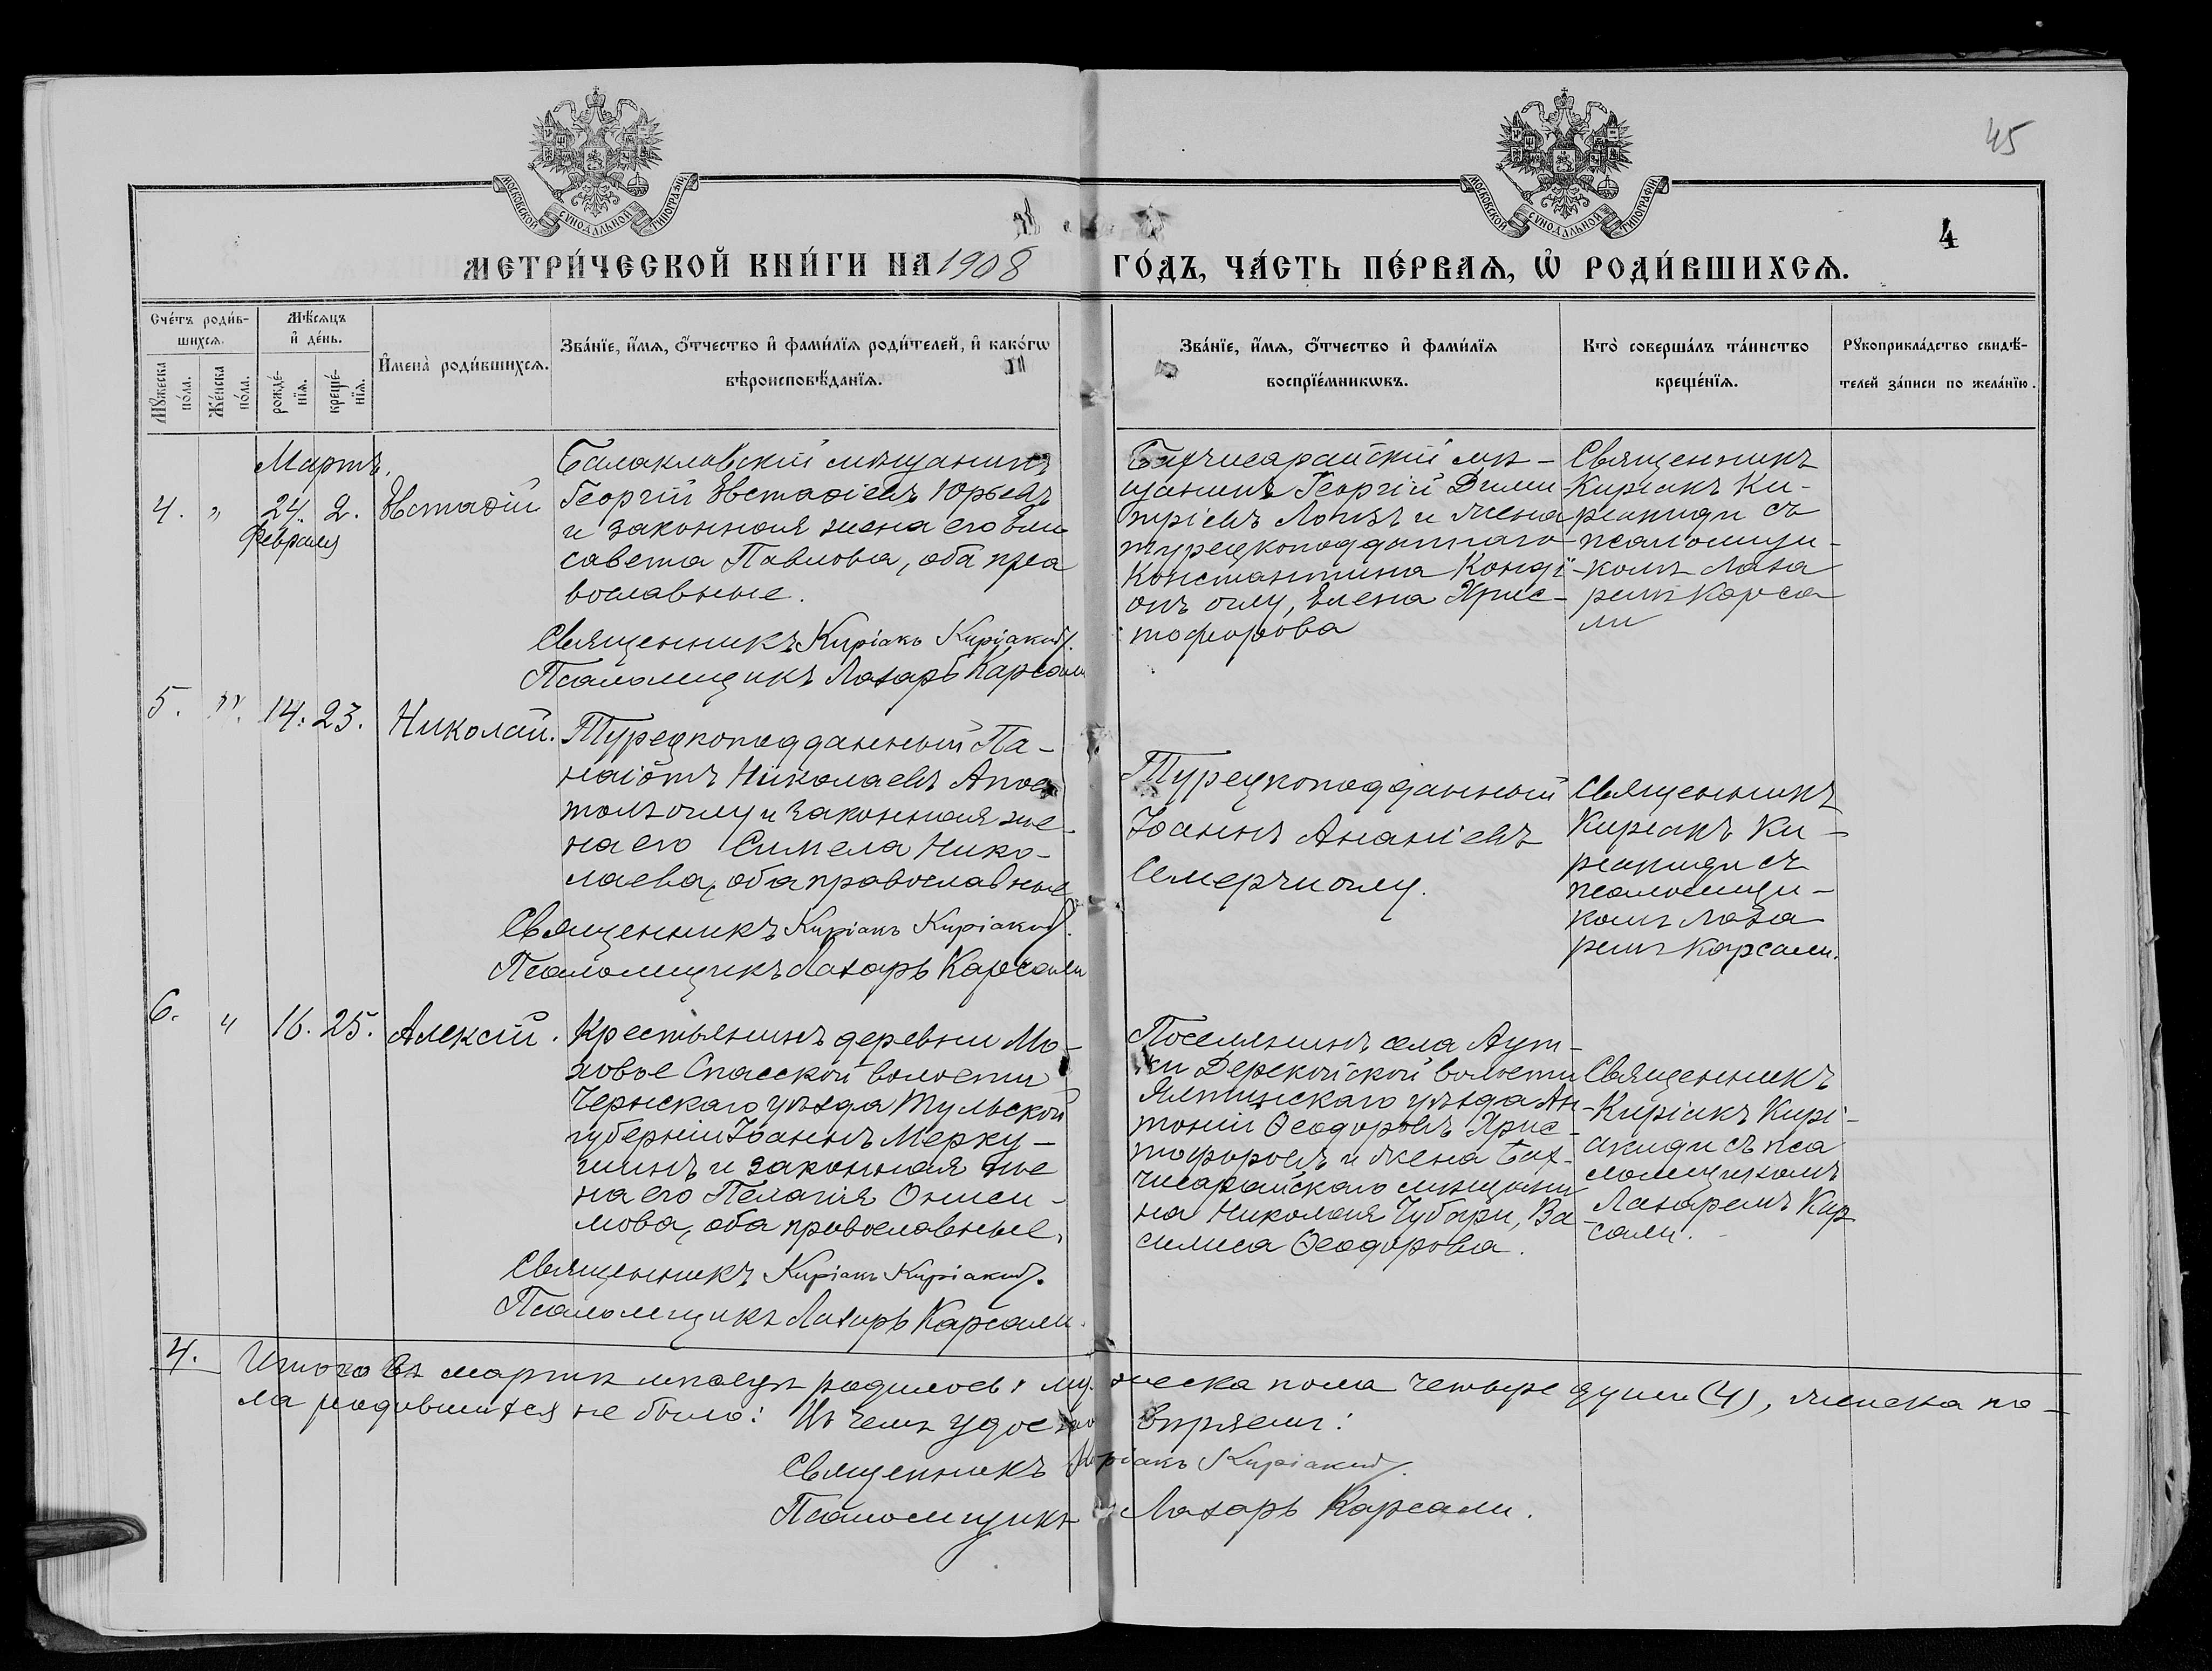 45
4
МОСКОВСКОЙ СУНОДАЛЬНОЙ ТИПОГРАФІИ
МОСКОВСКОЙ СУНОДАЛЬНОЙ ТИПОГРАФІИ
МЕТРИ́ЧЕСКОЙ КНИ́ГИ НА 1908
ГО́ДЪ, ЧА́СТЬ ПЕ́РВАѦ, Ѡ҆ РОДИ́ВШИХСѦ.
Сче́тъ роди́в-
шихсѧ.
Мꙋ́жеска по́ла.
Же́нска по́ла.
Мѣ́сѧцъ
и҆ де́нь.
рожде́-
нїѧ.
креще́-
нїѧ.
И҆мена̀ роди́вшихсѧ.
Зва́нїе, и҆́мѧ, ѻ҆́тчество и҆ фами́лїѧ роди́телей, и҆ како́гѡ
вѣроисповѣ́данїѧ.
Зва́нїе, и҆́мѧ, ѻ҆́тчество и҆ фами́лїѧ
воспрїе́мникѡвъ.
Кто̀ соверша́лъ та́инство
креще́нїѧ.
Рꙋкоприкла́дство свидѣ́-
телей за́писи по жела́нїю.
Мартъ.
4. " 24. 2. Евстаѳій
Февраля
Балаклавскій мѣщанинъ
Георгій Евстаѳіевъ Юрьевъ
и законная жена его Ели
савета Павлова, оба пра
вославные.
Священникъ Киріакъ Киріакиди.
Псаломщикъ Лазарь Карсали
Бахчисарайскій мѣ-
щанинъ Георгій Дими
тріевъ и жена
турецкоподданнаго
Константина Конді
онъ оглу, Елена Хрис-
тофорова
Священникъ
Киріакъ Ки-
ріакиди съ
псаломщи-
комъ Лаза
ремъ Карса
ли
5. " 14. 23. Николай.
Турецкоподданный Па-
наіотъ Николаевъ Апос
толъ оглу и законная же-
на его Симела Нико-
лаева, оба православные
Священникъ Киріакъ Киріакиди.
Псаломщикъ Лазарь Карсали
Турецкоподданный
Іоаннъ Ананіевъ
Семерчи оглу.
Священникъ
Киріакъ Ки-
ріакиди съ
псаломщи-
комъ Лаза
ремъ Карсали.
6. " 16. 25. Алексій.
Крестьянинъ деревни Мо-
ховое Спасской волости
Чернскаго уѣзда Тульской
губерніи Іоаннъ Мерку-
шинъ и законная же
на его Пелагія Ониси-
мова, оба православные,
Священникъ Киріакъ Киріакиди.
Псаломщикъ Лазарь Карсали.
Поселянинъ села Аут-
ки Дерекойской волости
Ялтинскаго уѣзда Ан-
тоній Ѳеодоровъ Хрис-
тофоровъ и жена Бах-
чисарайскаго мѣщани
на Николая Чубари, Ва-
силиса Ѳеодорова.
Священникъ
Киріакъ Кирі-
акиди съ пса
ломщикомъ
Лазаремъ Кар
сали.
4. Итого въ мартѣ мѣсяцѣ родилось: мужеска пола четыре души (4), женска по-
ла родившихся не было: Въ чемъ удостовѣряемъ:
Священникъ Киріакъ Киріакиди.
Псаломщикъ Лазарь Карсали.